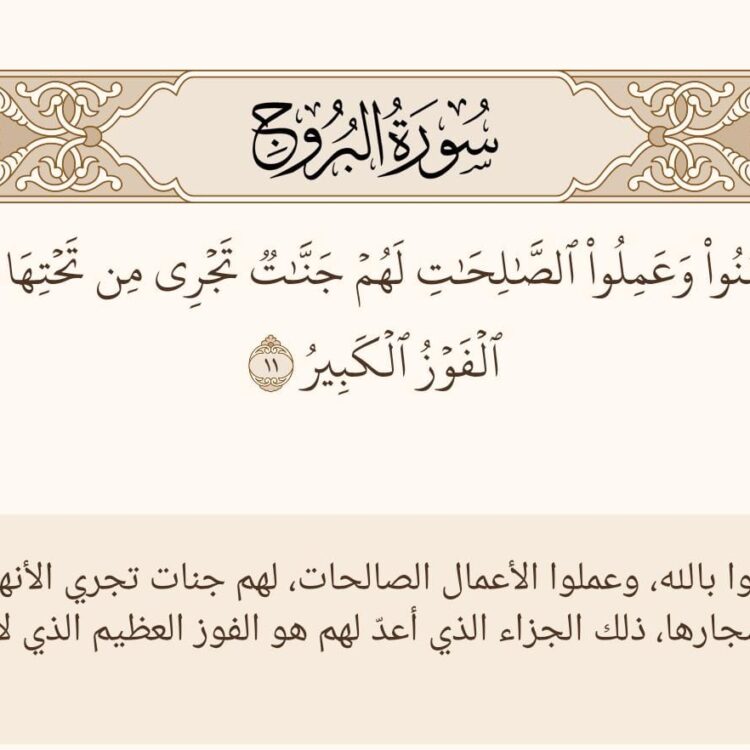 سُورَةُ البُرُوجِ
وَعَمِلُوا۟ ٱلصَّـٰلِحَـٰتِ لَهُمْ جَنَّـٰتٌ تَجْرِى مِن تَحْتِهَا
ٱلْفَوْزُ ٱلْكَبِيرُ ١١
بالله، وعملوا الأعمال الصالحات، لهم جنات تجري
ذلك الجزاء الذي أعدّ لهم هو الفوز العظيم الذي